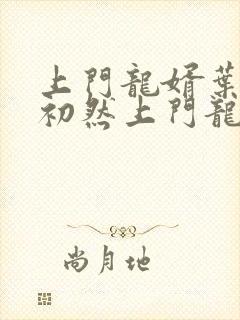 上門龍婿葉
初然上門龍
尚月地